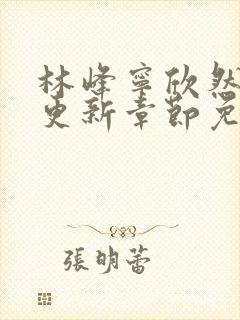 林峰寧欣然
更新章節免
張明蕾